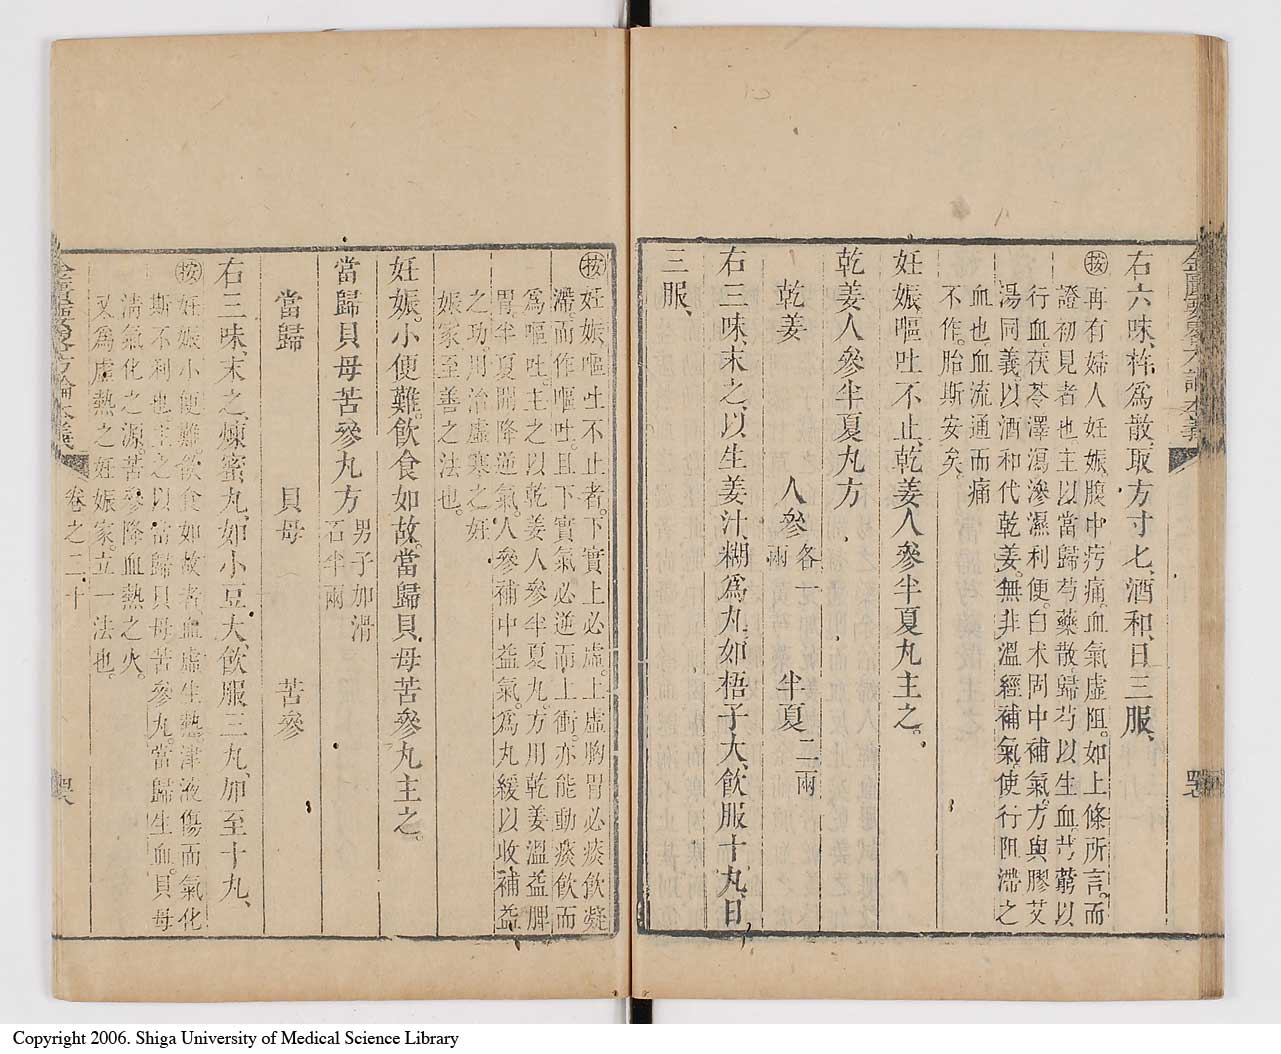 右六味、杵爲散、取方寸匕、酒和、日三服、
㊗按 再有婦人妊娠腹中㽲痛。血氣虛阻。如上條所言。而
證初見者也。主以當歸芍藥散。歸芍以生血。芎藭以
行血。茯苓澤瀉滲濕利便。白术固中補氣。方與膠艾
湯同義。以酒和代乾姜。無非溫經補氣。使行阻滯之
血也。血流通而痛
不作。胎斯安矣。
妊娠、嘔吐不止、乾姜人參半夏丸主之。
乾姜人參半夏丸方
乾姜 人參各一兩 半夏二兩
右三味、末之、以生姜汁、糊爲丸、如梧子大、飮服十丸、日
三服、
按 妊娠嘔吐不止者。下實上必虛。上虛胸胃必痰飮凝
滯。而作嘔吐。且下實氣必逆而上衝。亦能動痰飮而
爲嘔吐。主之以乾姜人參半夏丸。方用乾姜溫益脾
胃。半夏開降逆氣。人參補中益氣。爲丸緩以收補益
之功。用治虛寒之妊
娠家至善之法也。
妊娠。小便難。飮食如故。當歸貝母苦參丸主之。
當歸貝母苦參丸方 男子加滑石半兩
當歸 貝母 苦參
右三味、末之、煉蜜丸、如小豆大、飮服三丸、加至十丸、
按 妊娠小便難。飮食如故者。血虛生熱。津液傷而氣化
斯不利也。主之以當歸貝母苦參丸。當歸生血。貝母
淸氣化之源。苦參降血熱之火。
又爲虛熱之妊娠家。立一法也。
卷之二十
Copyright 2006. Shiga University of Medical Science Library